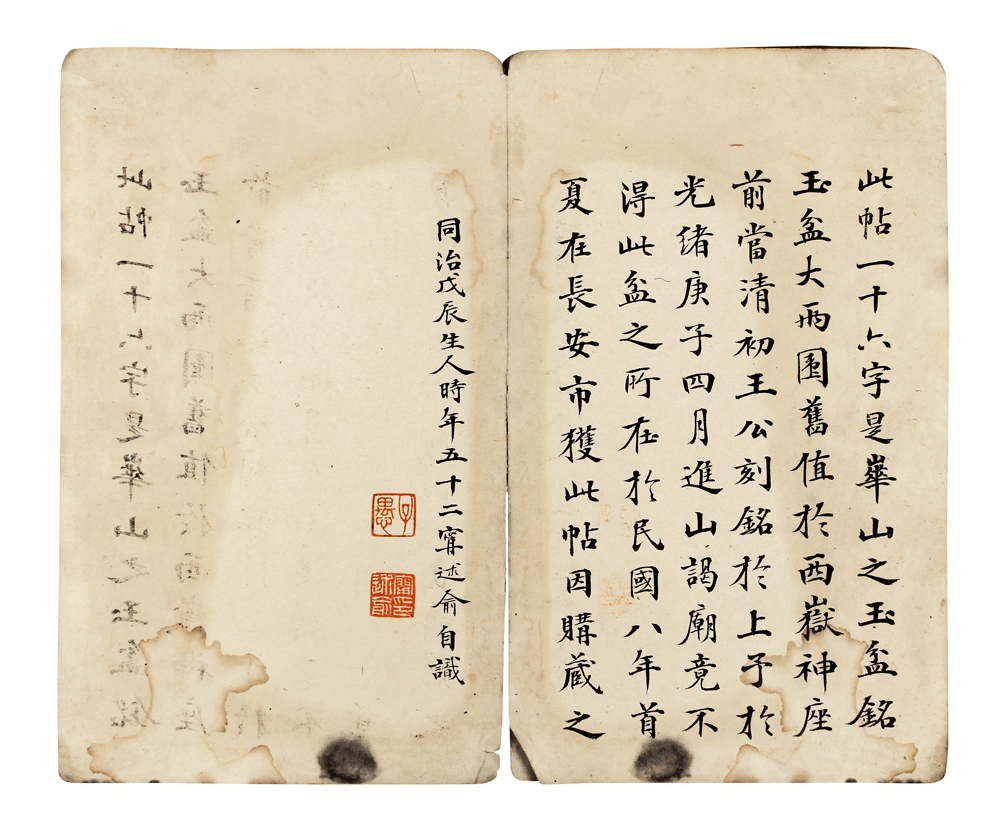 此帖一十六字是崋山之玉盆銘
玉盆大兩圍舊值於西嶽神座
前當清初王公刻銘於上予於
光緒庚子四月進山謁廟竟不
淂此盆之所在於民國八年首
夏在長安市獲此帖因購藏之
同治戊辰生人時年五十二甯述俞自識